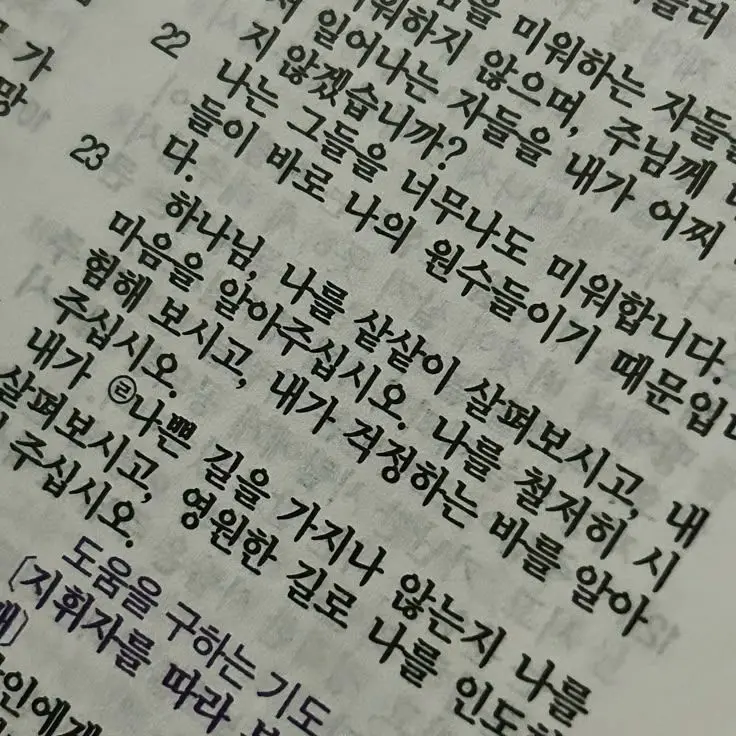 가
망
미워하는 자들을
않으며, 주님께
일어나는 자들을 내가 어찌
지 않겠습니까?
22 나는 그들을 너무나도 미워합니다.
들이 바로 나의 원수들이기 때문입니
다.
23 하나님, 나를 샅샅이 살펴보시고, 내
마음을 알아주십시오. 나를 철저히 시
험해 보시고, 내가 걱정하는 바를 알아
주십시오.
내가 ㉣나쁜 길을 가지나 않는지 나를
살펴보시고, 영원한 길로 나를 인도하
주십시오.
도움을 구하는 기도
[지휘자를 따라